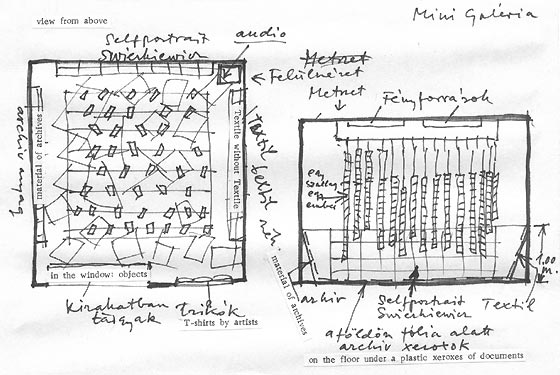 view from above
Mini Galéria
Selfportrait
Swierkiewicz
audio
Felülnézet
Metszet
Metszet
Fényforrások
archiv anyag
material of archives
Textile without Textile
Textil textil nélk.
egy
szalag
egy
ember
material of archives
in the window: objects
Kirakatban
tárgyak
Trikók
T-shirts by artists
archiv
Selfportrait
Swierkiewicz
Textil
1,00
m.
a földön fólia alatt
archiv xeroxok
on the floor under a plastic xeroxes of documents